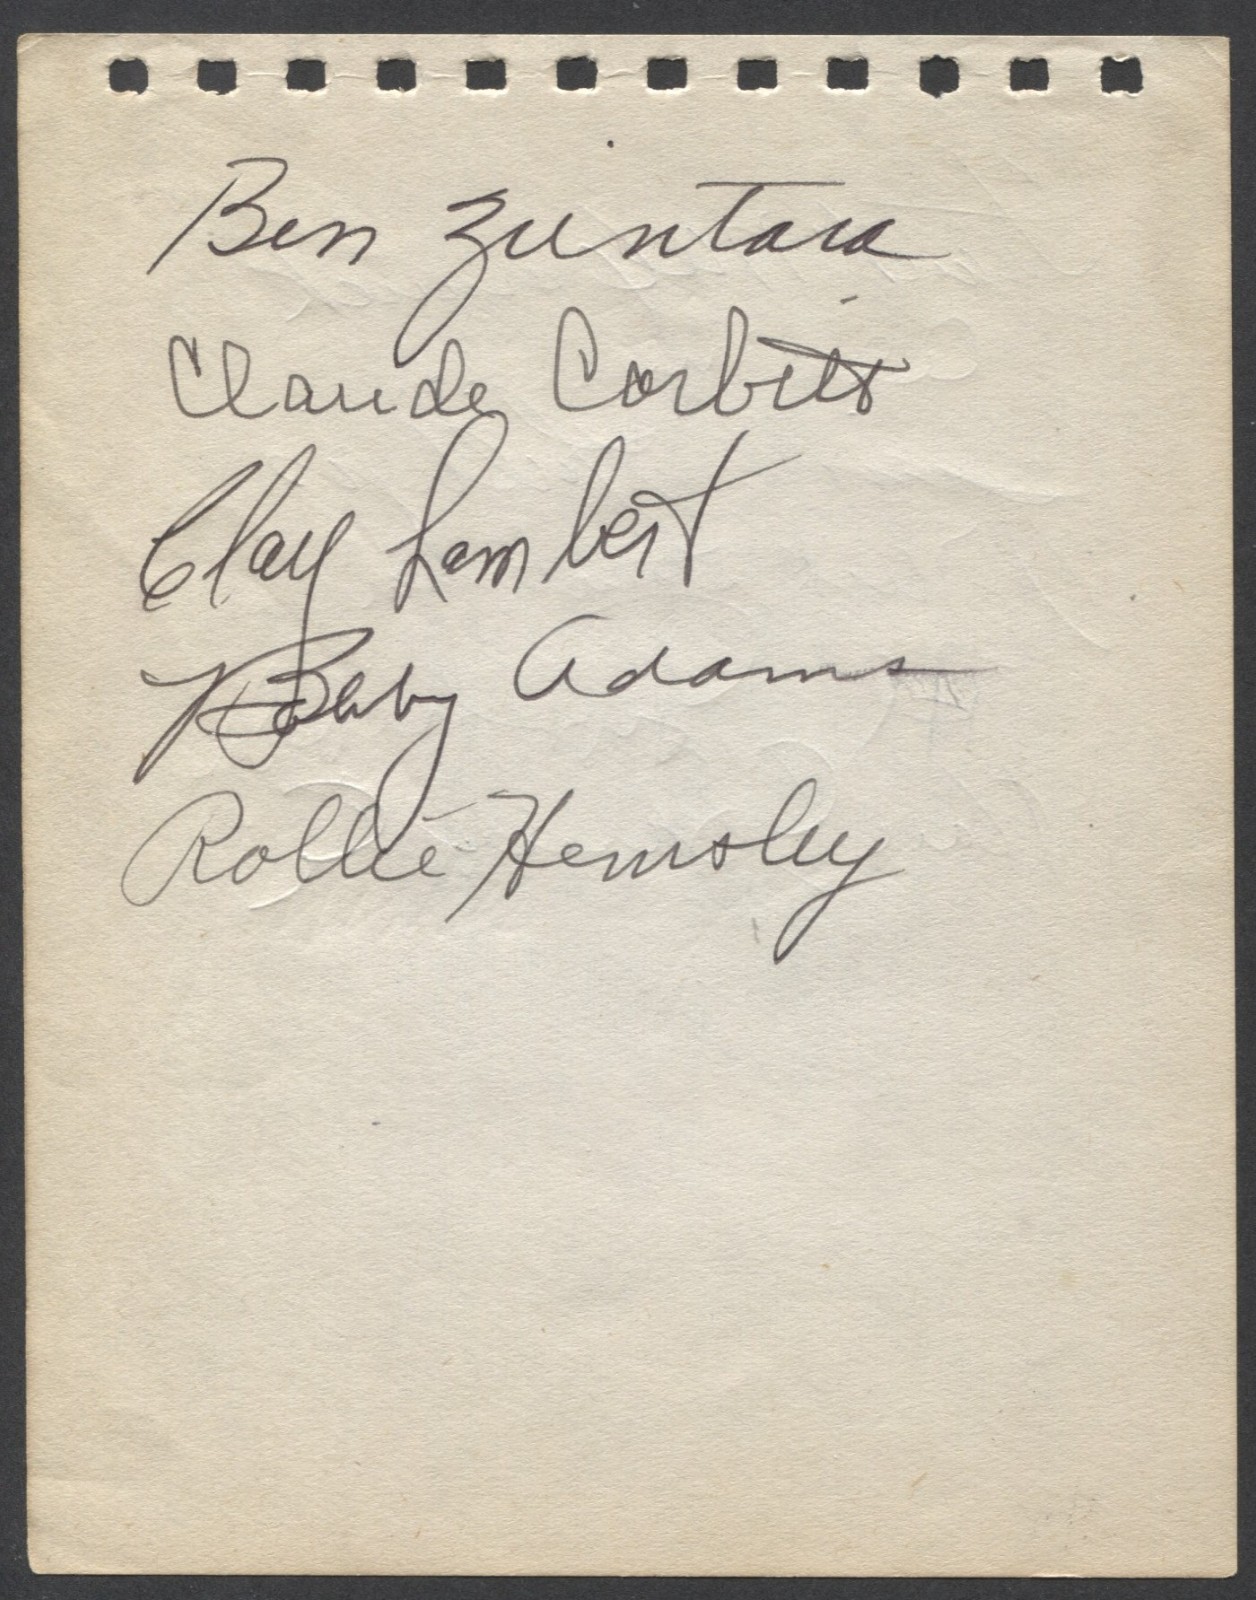 Ben Zientara
Claude Corbitt
Clay Lambert
Bobby Adams
Rollie Hemsley